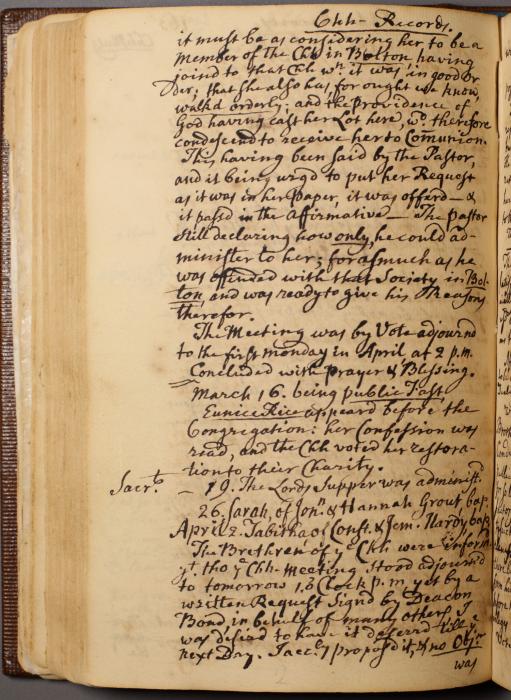 Chh- Records.
it must be as considering her to be a
Member of the Chh in Bolton having
joind to that Chh wn. it was in good Or
der; that She also has, for ought we know,
walk'd orderly; and the Providence of
God having cast her Lot here, wd. therefore
condescend to receive her to Comunion.
This having been said by the Pastor,
and it being urg'd to put her Request
as it was in her Paper, it was offerd — &
it passd in the Affirmative — The Pastor
still declaring how only, he could ad-
minister to her; forasmuch as he
was offended with that Society in Bol-
ton, and was ready to give his Reasons
therefor.
The Meeting was by Vote adjournd
to the first monday in April at 2 p.m.
Concluded with prayer & Blessing.
March 16. being public Fast
Eunice Rice appeard before the
Congregation: her Confession was
read, and the Chh voted her restora-
tion to their Charity.
Sacrt. — 19. The Lords Supper was administd.
26. Sarah, of Jonn. & Hannah Grout, bap.
April 2. Tabitha of Const. & Jem. Hardy bap
The Brethren of ye Chh were inform
yt. tho ye Chh-Meeting stood adjournd
to tomorrow 1,3 Clock p.m, yet by a
written Request Signd by Deacon
Bond, in behalf of many others I
was desired to have it deferrd till ye
next Day. I accly propos'd it, & no Objn
was